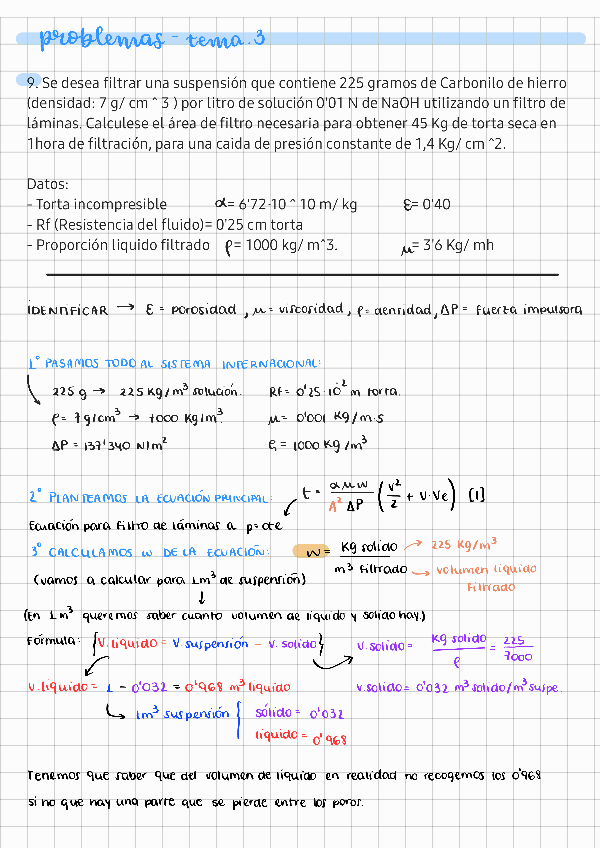 problemas - tema.3
9. Se desea filtrar una suspensión que contiene 225 gramos de Carbonilo de hierro
(densidad: 7 g/ cm ^ 3 ) por litro de solución 0'01 N de NaOH utilizando un filtro de
láminas. Calculese el área de filtro necesaria para obtener 45 Kg de torta seca en
1hora de filtración, para una caida de presión constante de 1,4 Kg/ cm ^2.
Datos:
- Torta incompresible α= 6'72·10 ^ 10 m/ kg ε= 0'40
- Rf (Resistencia del fluido)= 0'25 cm torta
- Proporción liquido filtrado ρ= 1000 kg/ m^3. μ= 3'6 Kg/ mh
IDENTIFICAR → ε = porosidad , μ = viscosidad , ρ = densidad , ΔP = fuerza impulsora
1º PASAMOS TODO AL SISTEMA INTERNACIONAL:
225 g → 225 Kg/m³ solución. Rf = 0'25·10⁻² m torta.
ρ = 7 g/cm³ → 7000 Kg/m³. μ = 0'001 Kg/m·s
ΔP = 137'340 N/m² ρ = 1000 Kg/m³
2º PLANTEAMOS LA ECUACIÓN PRINCIPAL: t = αμw / A² ΔP (V²/2 + V·Ve) [1]
Ecuación para filtro de láminas a p=cte
3º CALCULAMOS W DE LA ECUACIÓN: W = Kg solido / m³ filtrado → 225 Kg/m³
→ volumen líquido filtrado
(vamos a calcular para 1m³ de suspensión)
↓
(En 1m³ queremos saber cuanto volumen de líquido y solido hay.)
Fórmula: {V.líquido = V suspensión - V. solido} V.solido = Kg solido / ρ = 225 / 7000
V.líquido = 1 - 0'032 = 0'968 m³ líquido V.solido = 0'032 m³ solido/m³ suspe.
↳ 1m³ suspensión { sólido = 0'032
líquido = 0'968
Tenemos que saber que del volumen de líquido en realidad no recogemos los 0'968
si no que hay una parte que se pierde entre los poros.